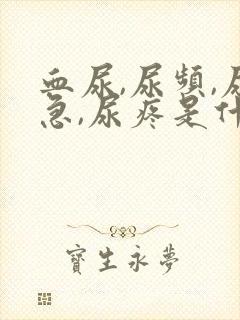 血尿,尿頻,尿
急,尿疼是什
寶生永夢